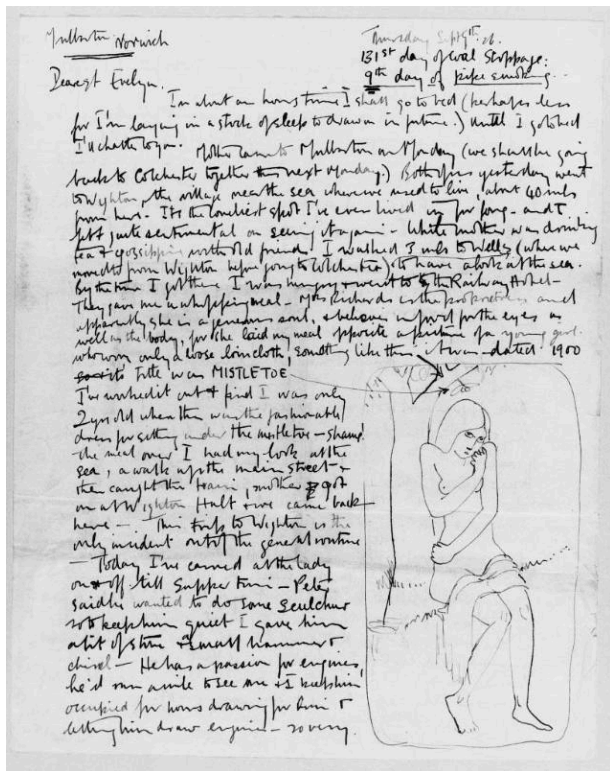 Mulbarton Norwich
Thursday Sept 9th. 26.
131st day of Coal Stoppage:
9th day of pipe smoking.
Dearest Evelyn.
In about an hours time I shall go to bed (perhaps less
for I'm laying in a stock of sleep to draw on in future.) Until I go to bed
I'll chatter to you. Mother came to Mulbarton on Monday (we shall be going
back to Colchester together next Monday.) Both of us yesterday went
to Wighton, the village near the sea where we used to live, about 40 mls
from here. It's the loneliest spot I've ever lived in for long - and I
felt quite sentimental on seeing it again - While mother was drinking
tea & gossipping with old friends I walked 3 mls to Wells, (where we
moved to from Wighton before going to Colchester) to have a look at the sea.
By the time I got there I was hungry & went to the Railway Hotel -
They gave me a whopping meal - Mrs Richards is the proprietress and
apparently she is a generous soul, & believes in food for the eyes as
well as the body, for she laid my meal opposite a picture of a young girl
who wore only a loose loincloth, something like this it was - dated 1900
its title was MISTLETOE
I've worked it out & find I was only
2 yrs old when this was the fashionable
dress for sitting under the mistletoe - shame!
the meal over I had my look at the
sea, a walk up the main street &
then caught the train, mother got
on at Wighton Halt & we came back
here - This trip to Wighton is the
only incident out of the general routine
- Today I've carved at the lady
on & off till supper time - Peter
said he wanted to do some sculchur
so to keep him quiet I gave him
a bit of stone & small hammer &
chisel - He has a passion for engines,
he'd run a mile to see one & I keep him
occupied for hours drawing for him &
letting him draw engines - so very